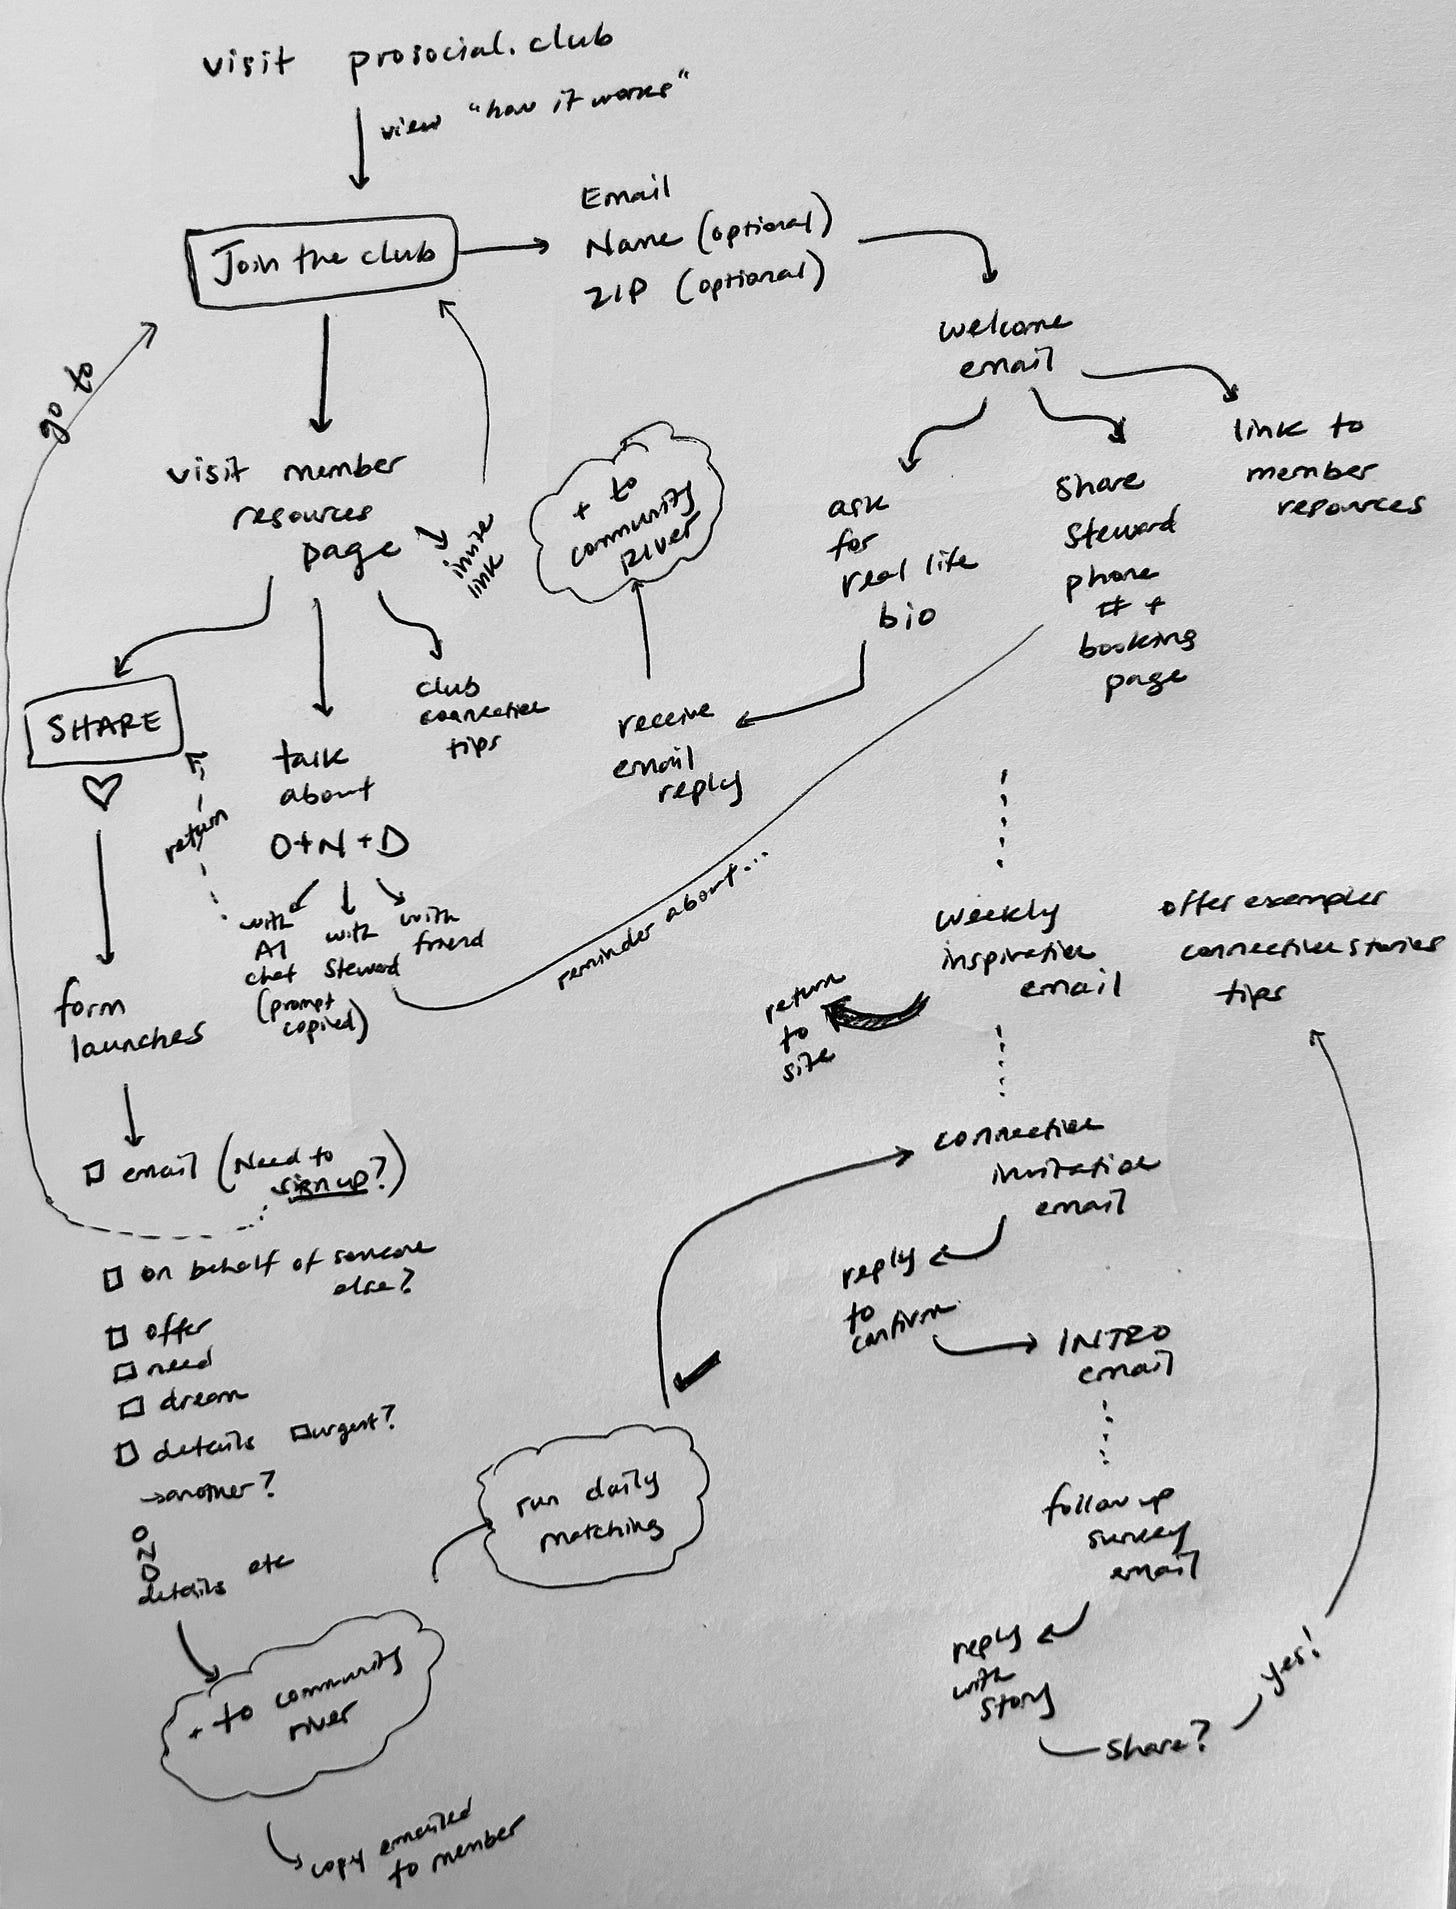 visit prosocial.club
view "how it works"
Join the club
Email
Name (optional)
ZIP (optional)
welcome
email
go to
visit member
resources
page
invite
link
+ to
community
River
ask
for
real life
bio
share
steward
phone
# +
booking
page
link to
member
resources
SHARE
return
talk
about
O+N+D
club
connection
tips
receive
email
reply
with
AI
chat
(prompt
copied)
with
steward
with
friend
reminder about...
weekly
inspiration
email
offer examples
connection stories
tips
return
to
site
form
launches
email (Need to
sign up?)
on behalf of someone
else?
offer
need
dream
details urgent?
→another?
O
N
D
details etc
+ to community
river
copy emailed
to member
run daily
matching
connection
invitation
email
reply
to
confirm
INTRO
email
follow up
survey
email
reply
with
story
share?
yes!